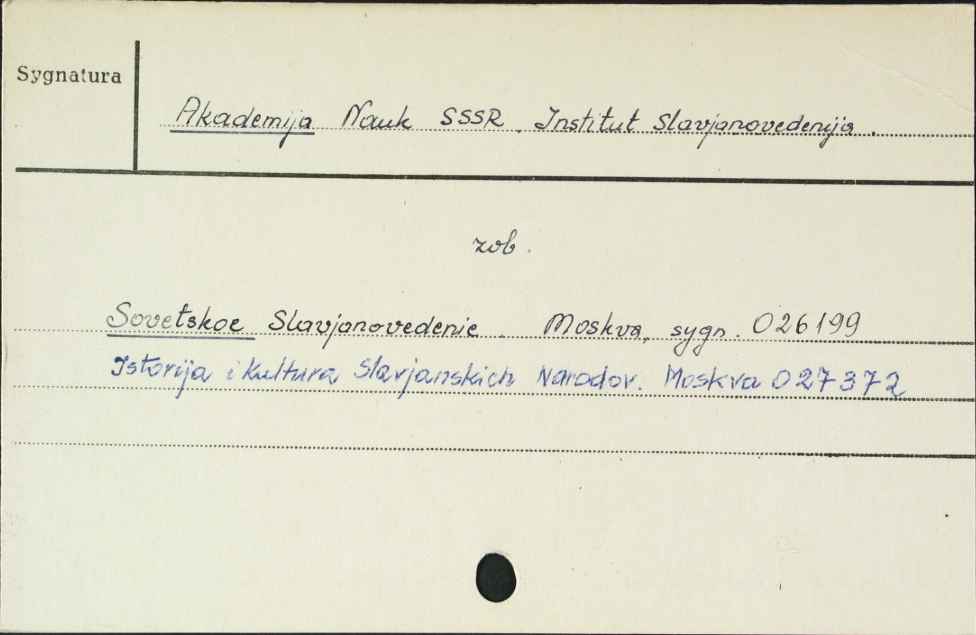 Sygnatura
Akademija Nauk SSSR. Institut Slavjanovedenija.
zob.
Sovetskoe Slavjanovedenie. Moskva, sygn. 026199
Istorija i Kultura Slavjanskich Narodov. Moskva 027372